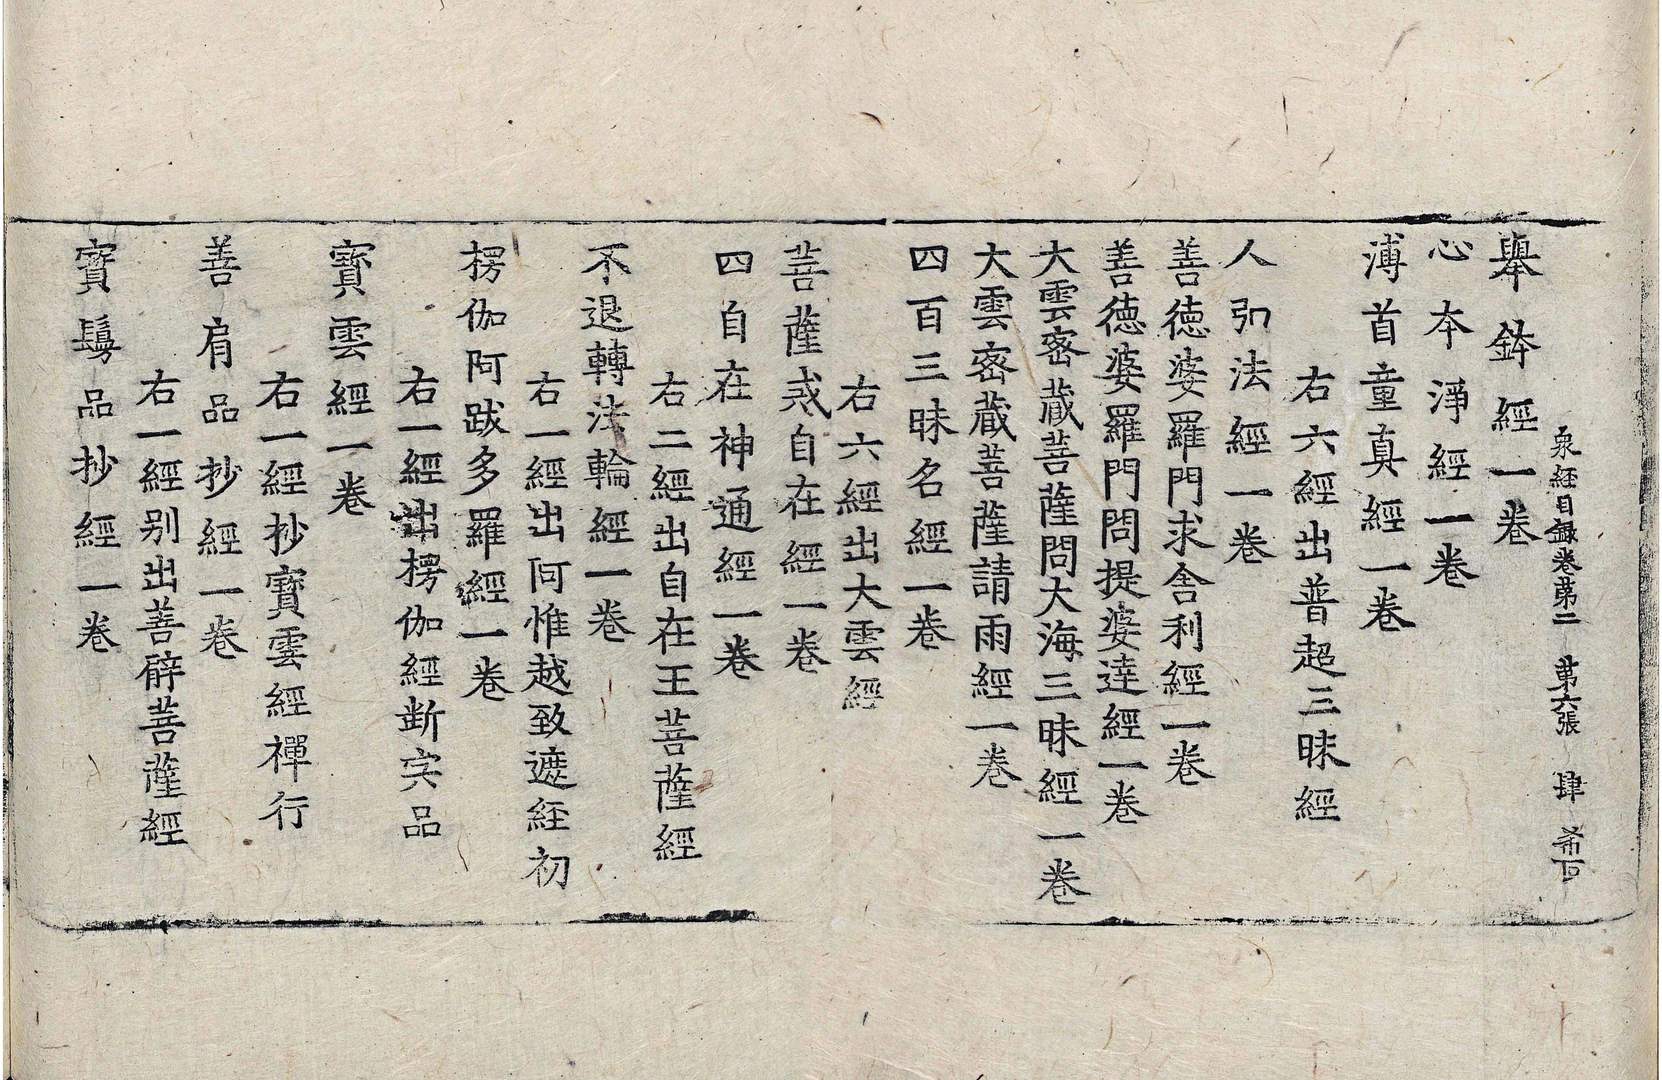 衆経目録卷第二 第六張 肆
舉鉢經一卷
心本淨經一卷
溥首童真經一卷
右六經出普超三昧經
人引法經一卷
善德婆羅門求舍利經一卷
善德婆羅門問提婆達經一卷
大雲密藏菩薩問大海三昧經一卷
大雲密藏菩薩請雨經一卷
四百三昧名經一卷
右六經出大雲經
菩薩戒自在經一卷
四自在神通經一卷
右二經出自在王菩薩經
不退轉法輪經一卷
右一經出阿惟越致遮経初
楞伽阿跋多羅經一卷
右一經出楞伽經断宍品
寳雲經一卷
右一經抄寳雲經禪行
善肩品抄經一卷
右一經别出善辟菩薩經
寳鬘品抄經一卷